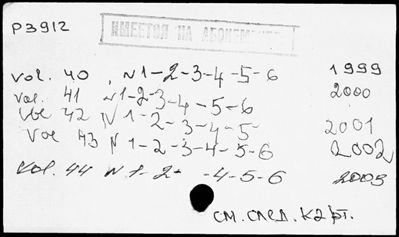 P3912
ИМЕЕТСЯ НА АБОНЕМЕНТЕ
Vol. 40, N 1-2-3-4-5-6 1999
Vol. 41 N 1-2-3-4-5-6 2000
Vol 42 N 1-2-3-4-5- 2001
Vol 43 N 1-2-3-4-5-6 2002
Vol. 44 N 1-2- -4-5-6 2003
см. след. карт.